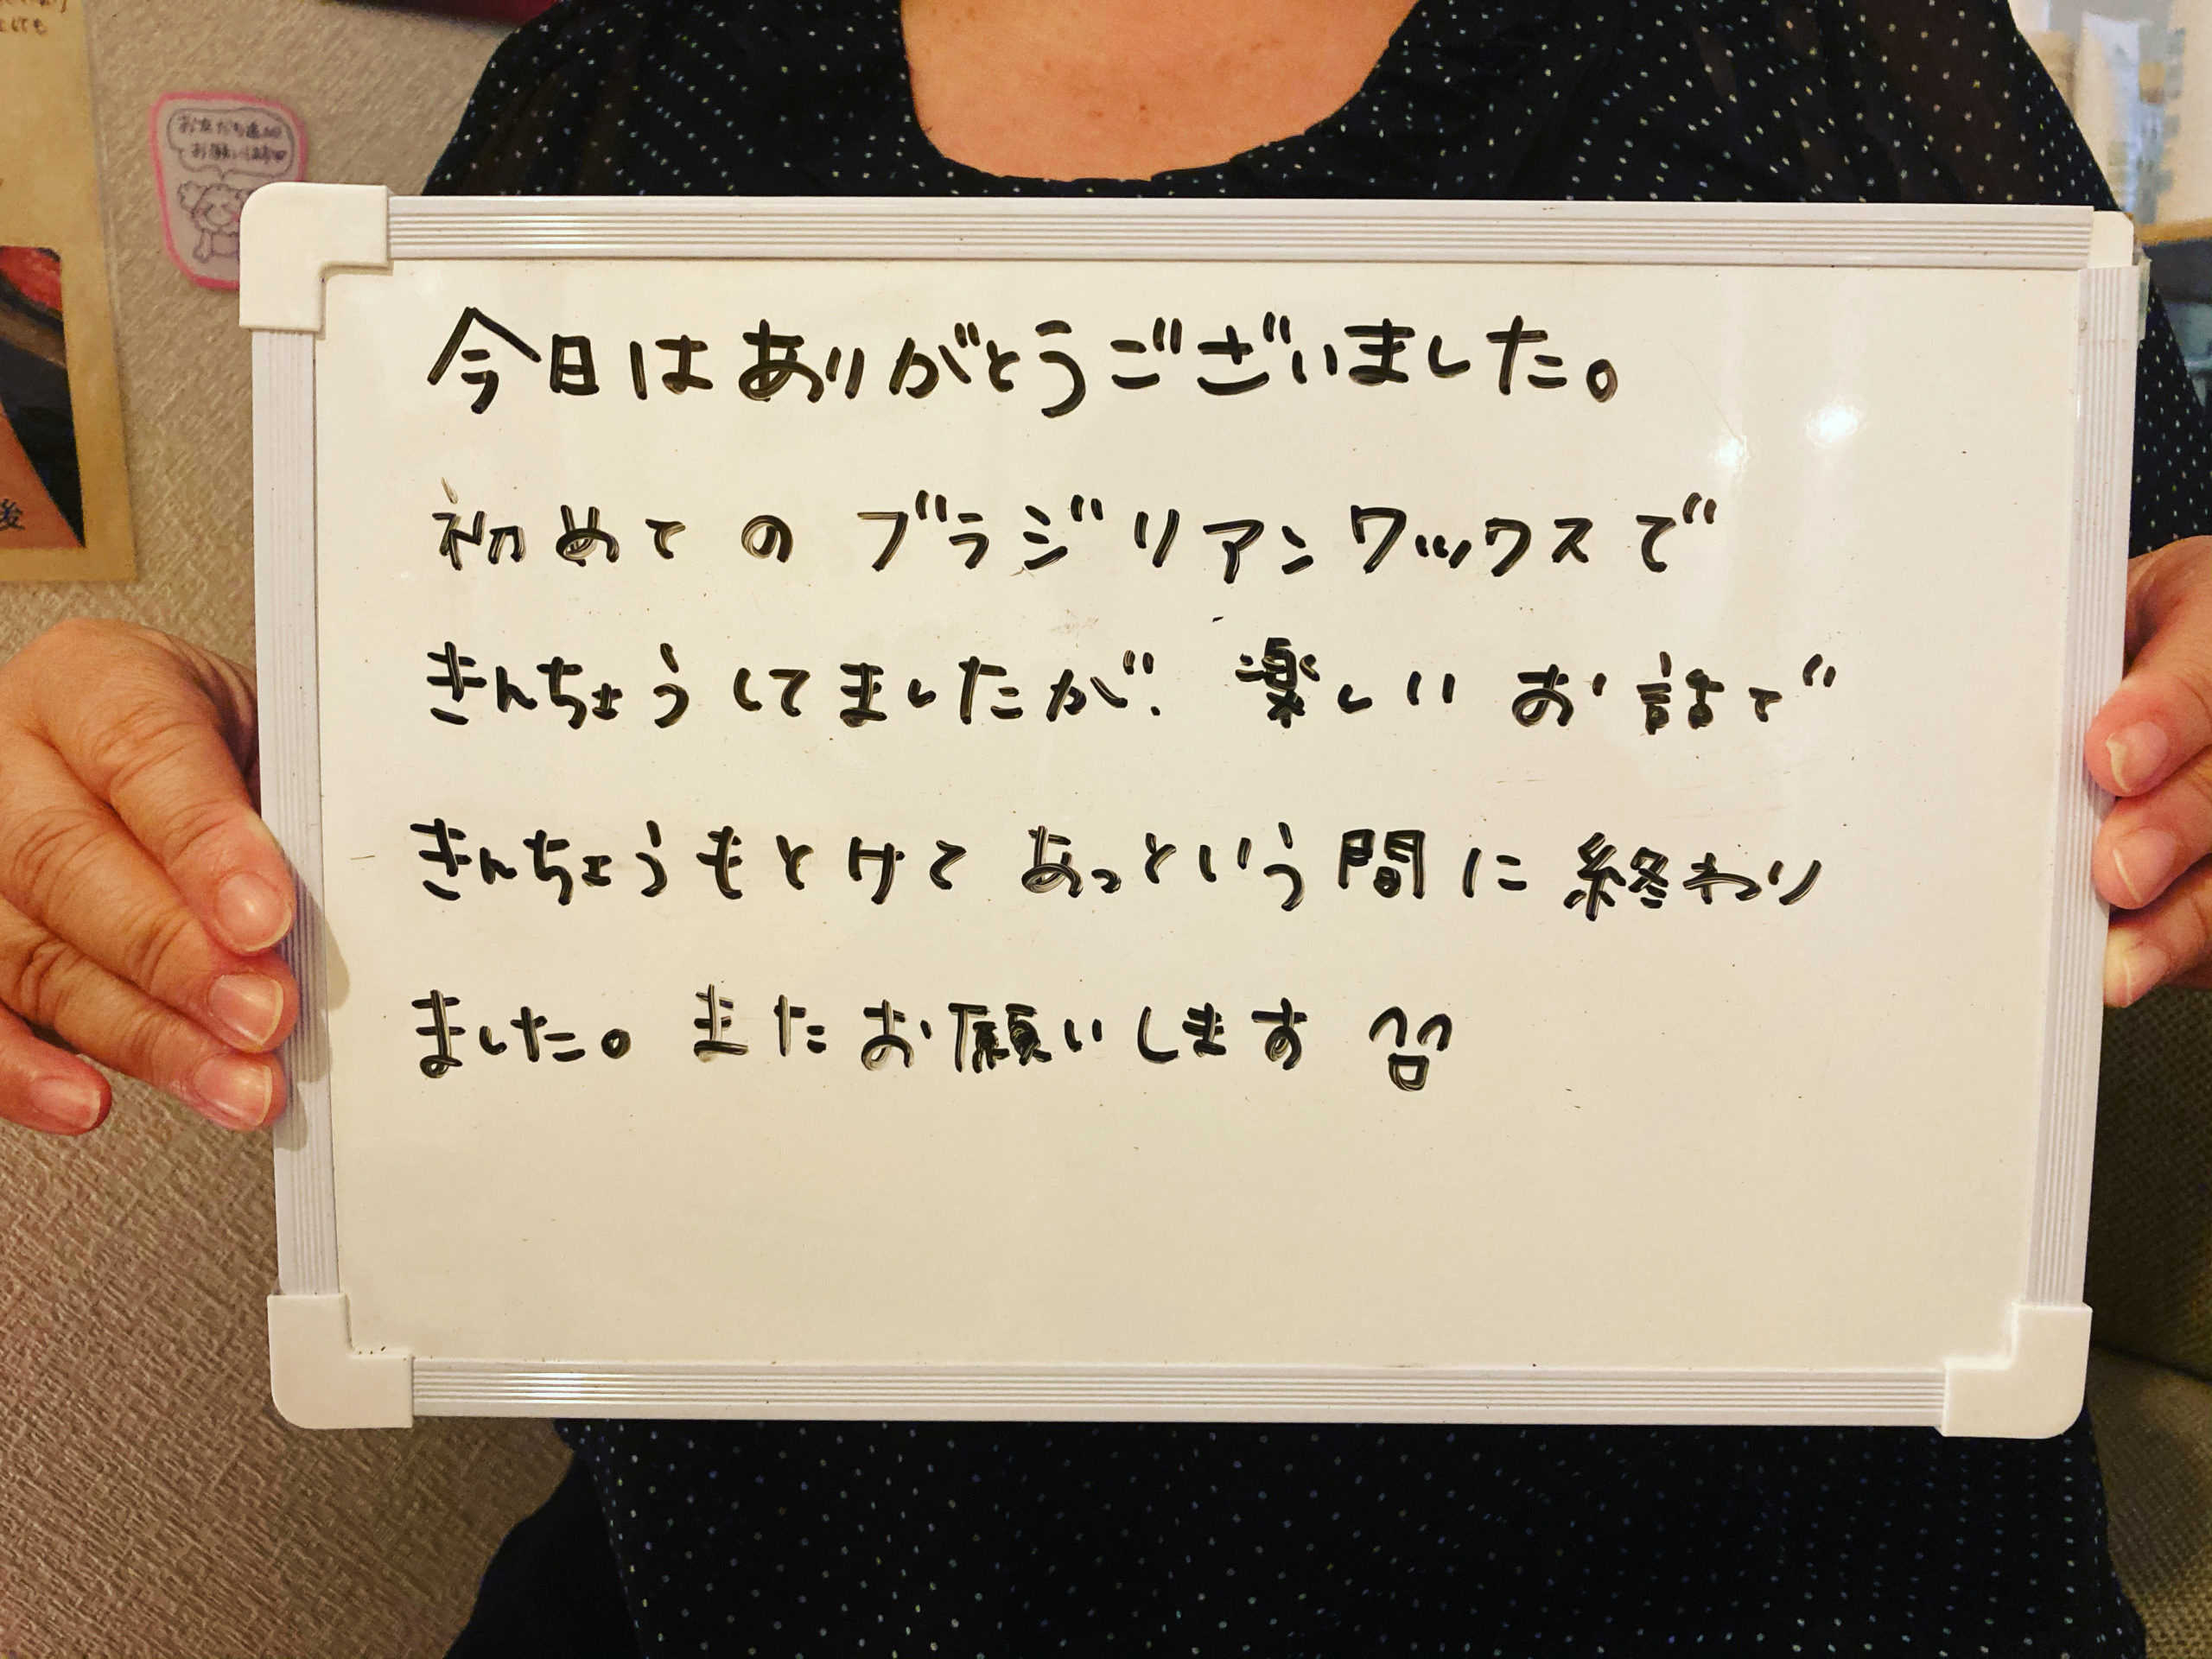 お友だち追加
お願いします
後
今日はありがとうございました。
初めてのブラジリアンワックスで
きんちょうしてましたが、楽しいお話で
きんちょうもとけてあっという間に終わり
ました。またお願いします